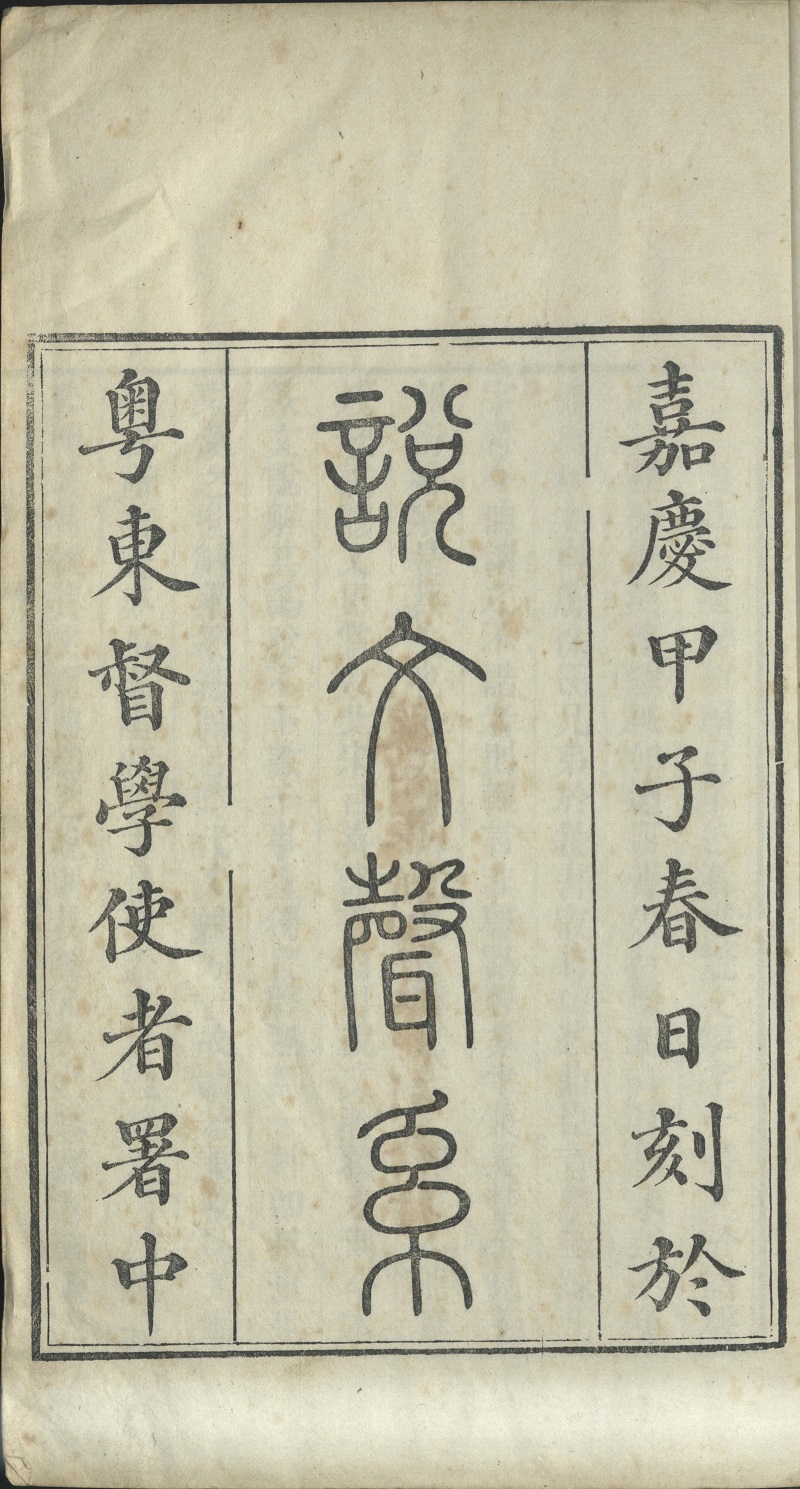 嘉慶甲子春日刻於
說文聲系
粵東督學使者署中